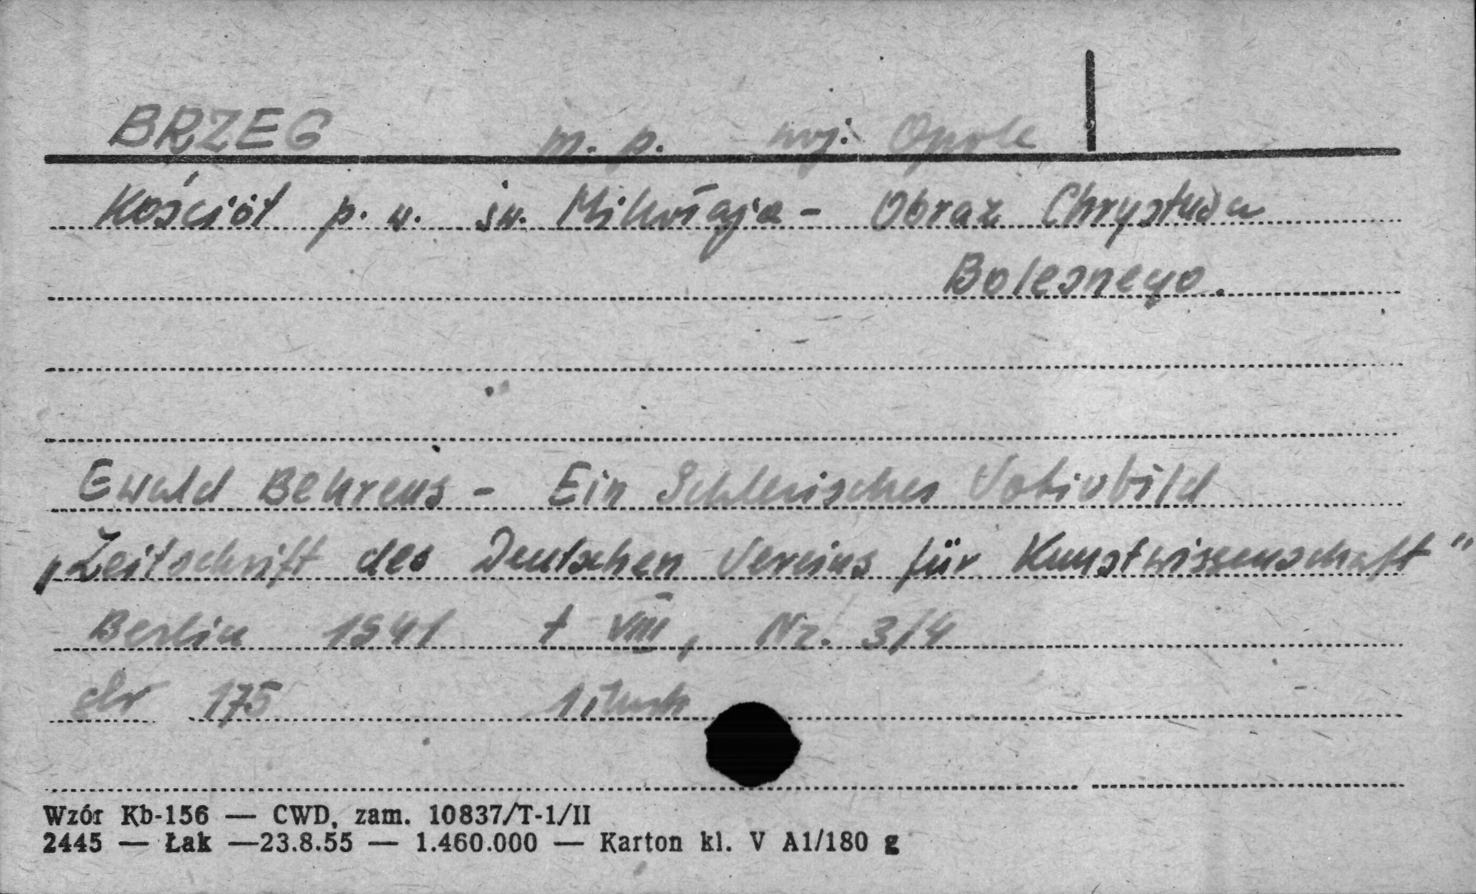 BRZEG m. p. woj. Opole
Kościół p. w. św. Mikołaja - Obraz Chrystusa
Bolesnego.
Ewald Behrens - Ein Schlesisches Votivbild
„Zeitschrift des Deutschen Vereins für Kunstwissenschaft"
Berlin 1941 t VIII, Nr. 3/4
str 175 1 ilustr
Wzór Kb-156 — CWD, zam. 10837/T-1/II
2445 — Łak —23.8.55 — 1.460.000 — Karton kl. V A1/180 g